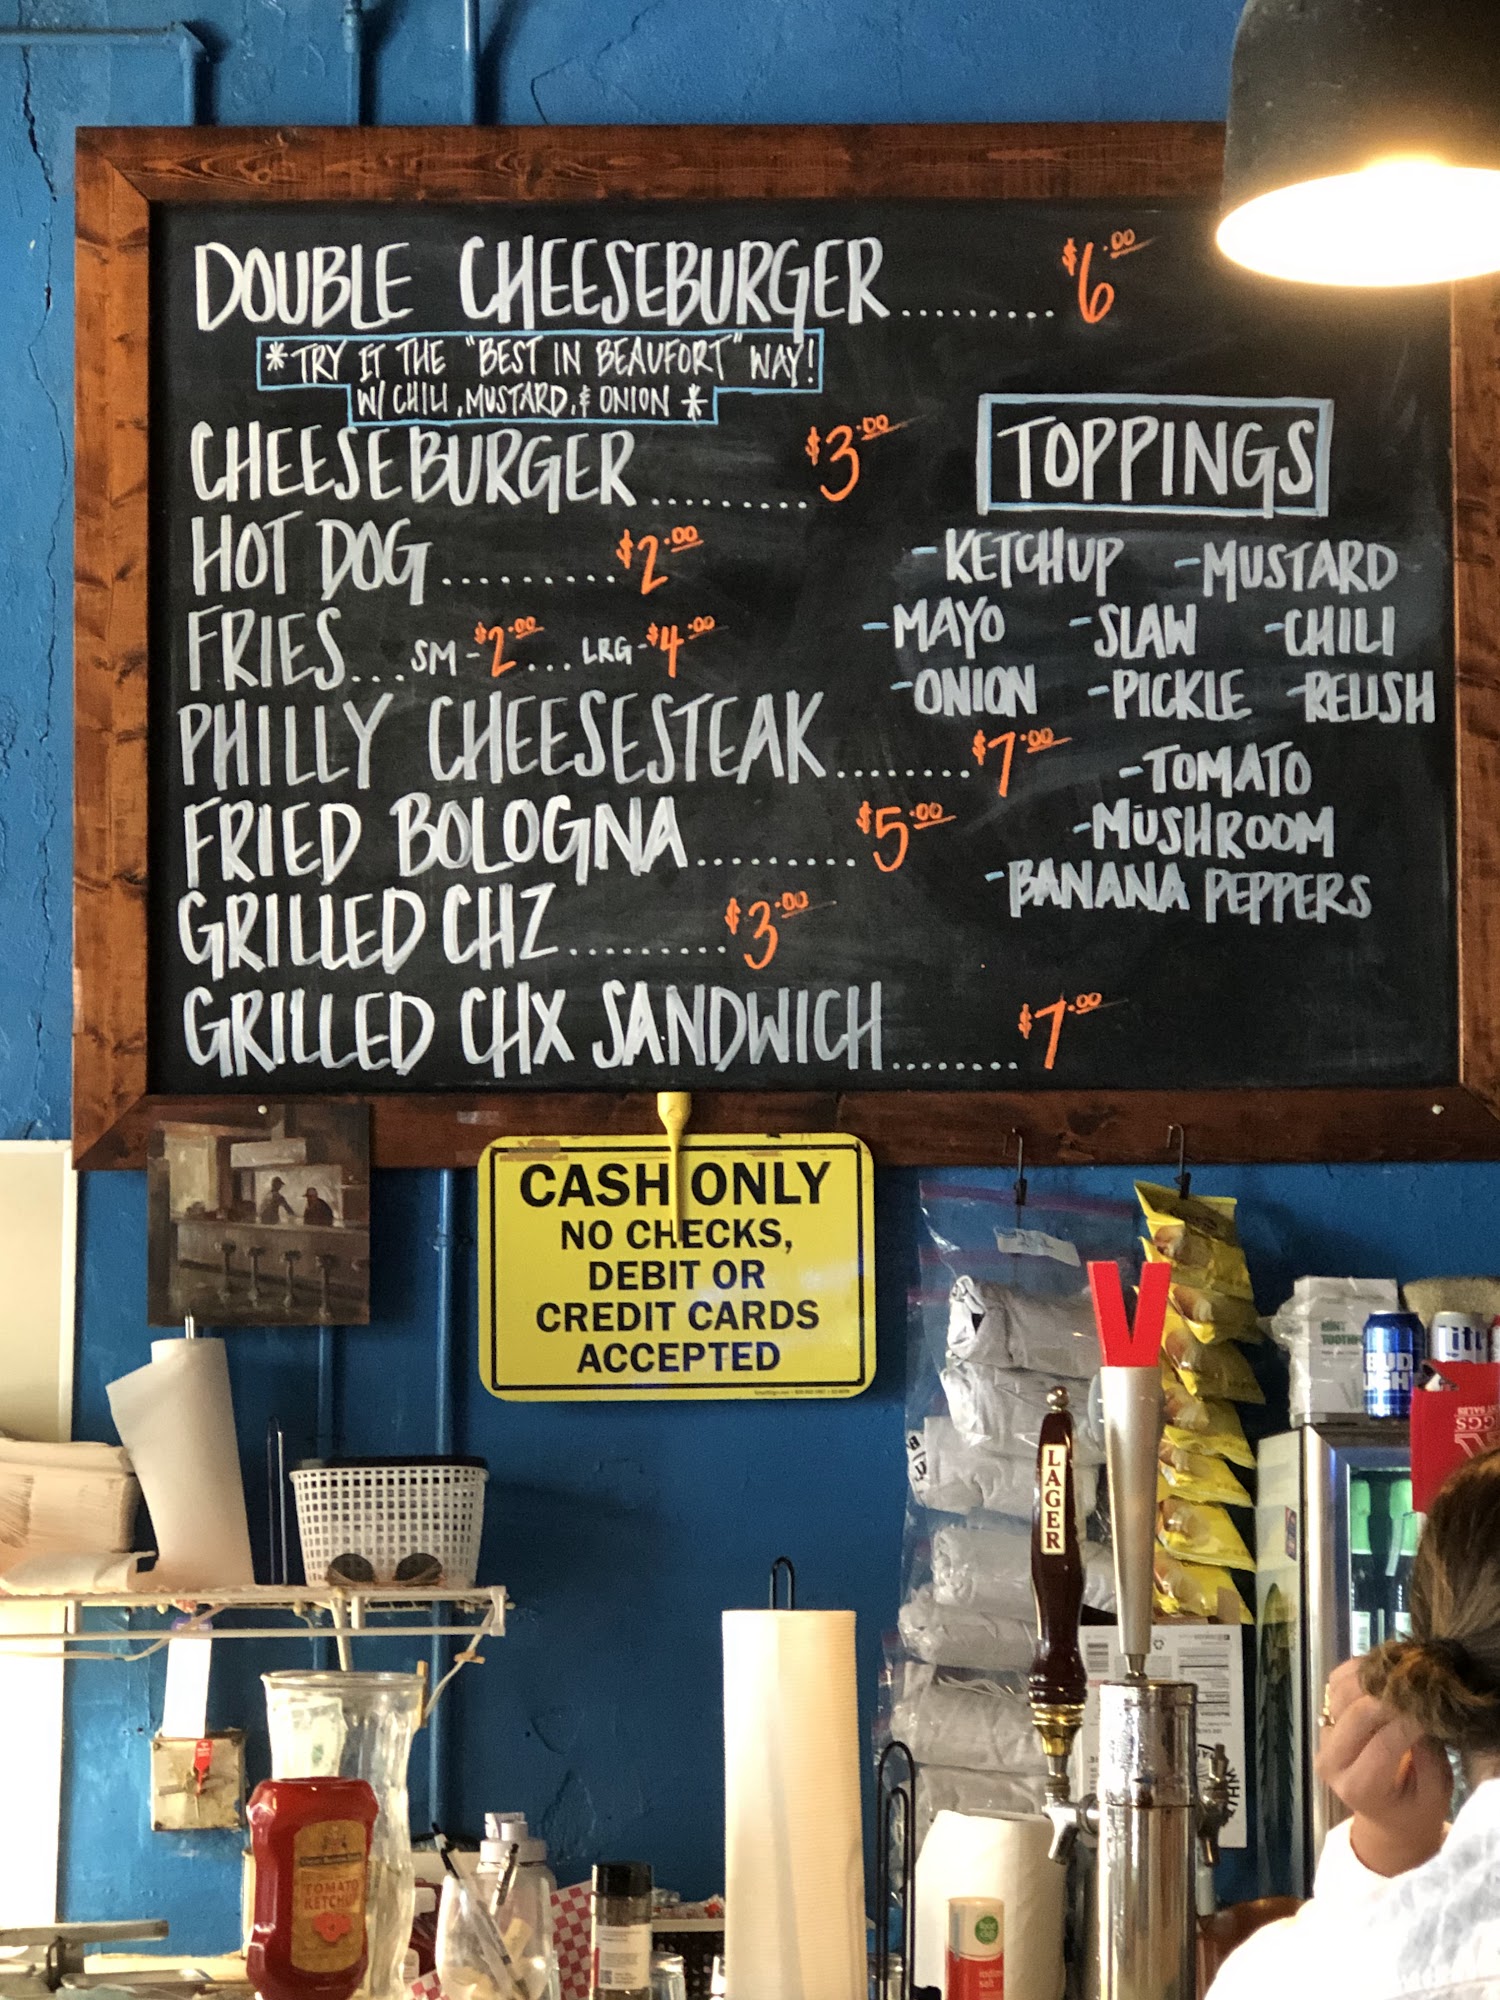 DOUBLE CHEESEBURGER......... $6.00
*TRY IT THE "BEST IN BEAUFORT" WAY!
W/ CHILI, MUSTARD, & ONION *
CHEESEBURGER ......... $3.00
HOT DOG ......... $2.00
FRIES... SM - $2.00 ... LRG - $4.00
PHILLY CHEESESTEAK ........ $7.00
FRIED BOLOGNA ......... $5.00
GRILLED CHZ ......... $3.00
GRILLED CHX SANDWICH ........ $7.00
TOPPINGS
- KETCHUP - MUSTARD
- MAYO - SLAW - CHILI
- ONION - PICKLE - RELISH
- TOMATO
- MUSHROOM
- BANANA PEPPERS
CASH ONLY
NO CHECKS,
DEBIT OR
CREDIT CARDS
ACCEPTED
LAGER
MINT
BUD
LIGHT
TOMATO
KETCHUP
food